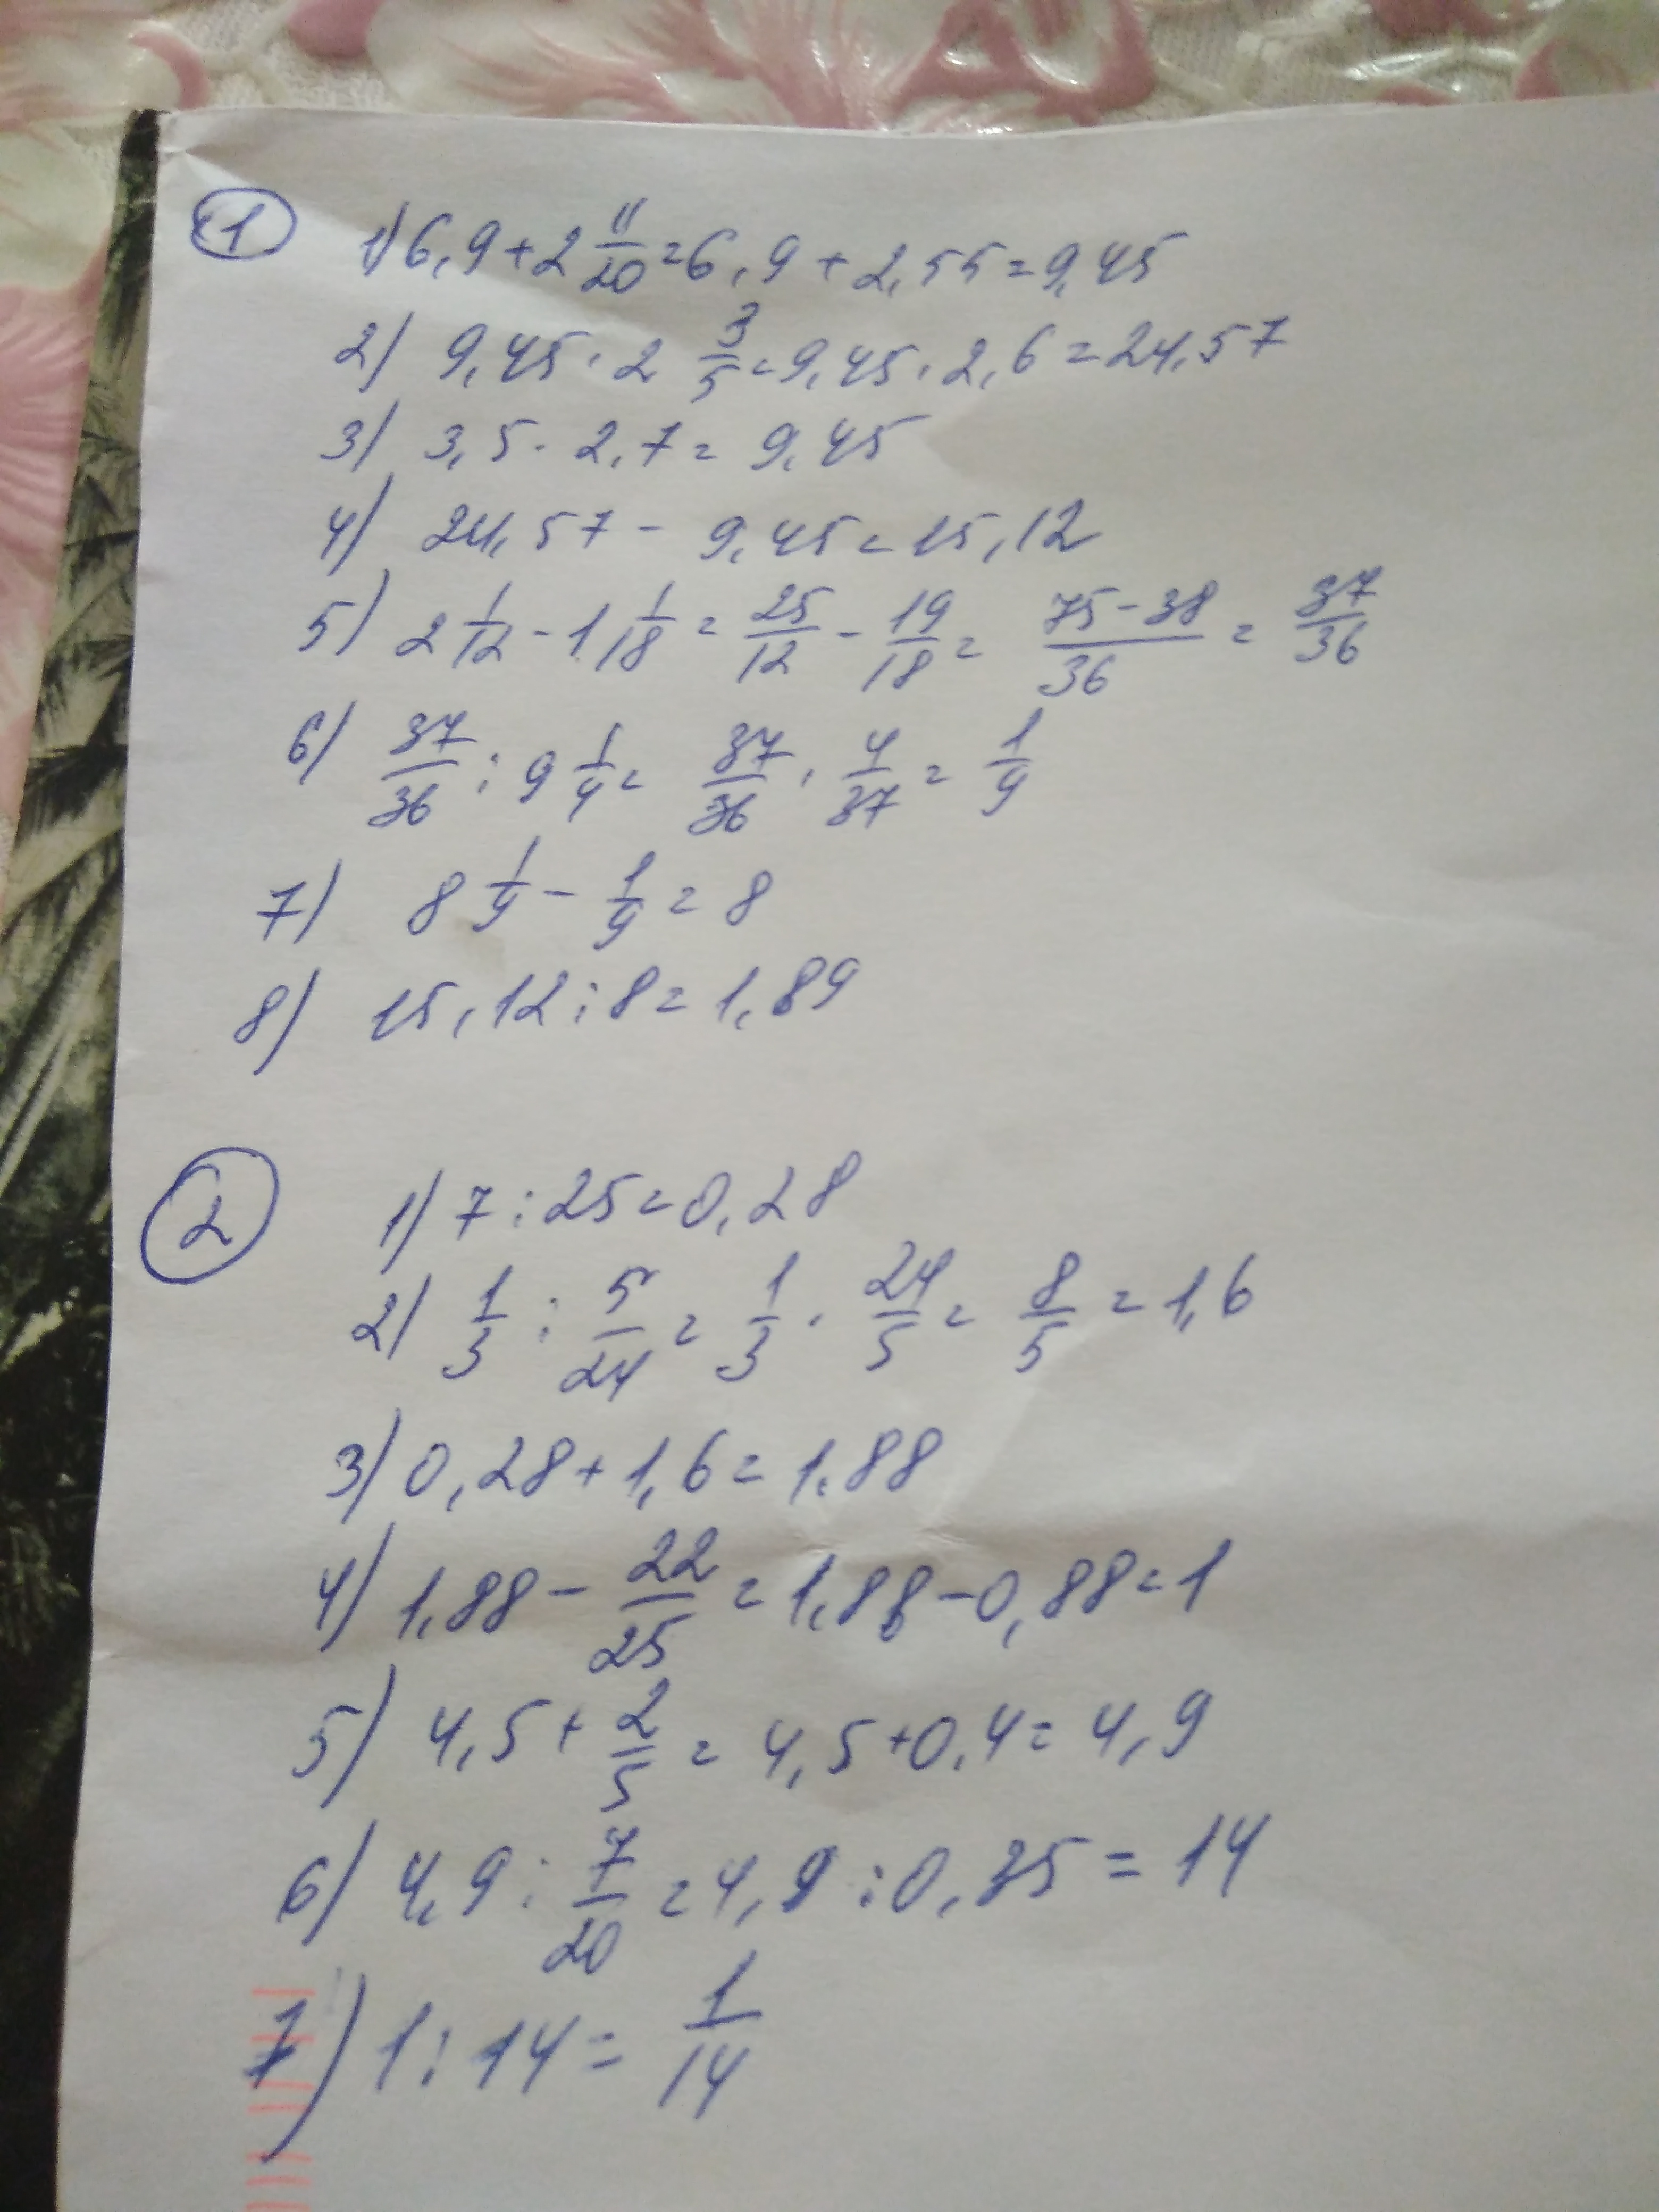 1
1) 6,9 + 2 11/20 = 6,9 + 2,55 = 9,45
2) 9,45 · 2 3/5 = 9,45 · 2,6 = 24,57
3) 3,5 · 2,7 = 9,45
4) 24,57 - 9,45 = 15,12
5) 2 1/12 - 1 1/18 = 25/12 - 19/18 = (75-38)/36 = 37/36
6) 37/36 : 9 1/4 = 37/36 · 4/37 = 1/9
7) 8 1/9 - 1/9 = 8
8) 15,12 : 8 = 1,89
2
1) 7 : 25 = 0,28
2) 1/3 : 5/24 = 1/3 · 24/5 = 8/5 = 1,6
3) 0,28 + 1,6 = 1,88
4) 1,88 - 22/25 = 1,88 - 0,88 = 1
5) 4,5 + 2/5 = 4,5 + 0,4 = 4,9
6) 4,9 : 7/20 = 4,9 : 0,35 = 14
7) 1 : 14 = 1/14